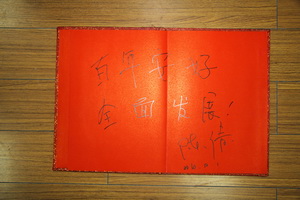 百年安好
全面发展!